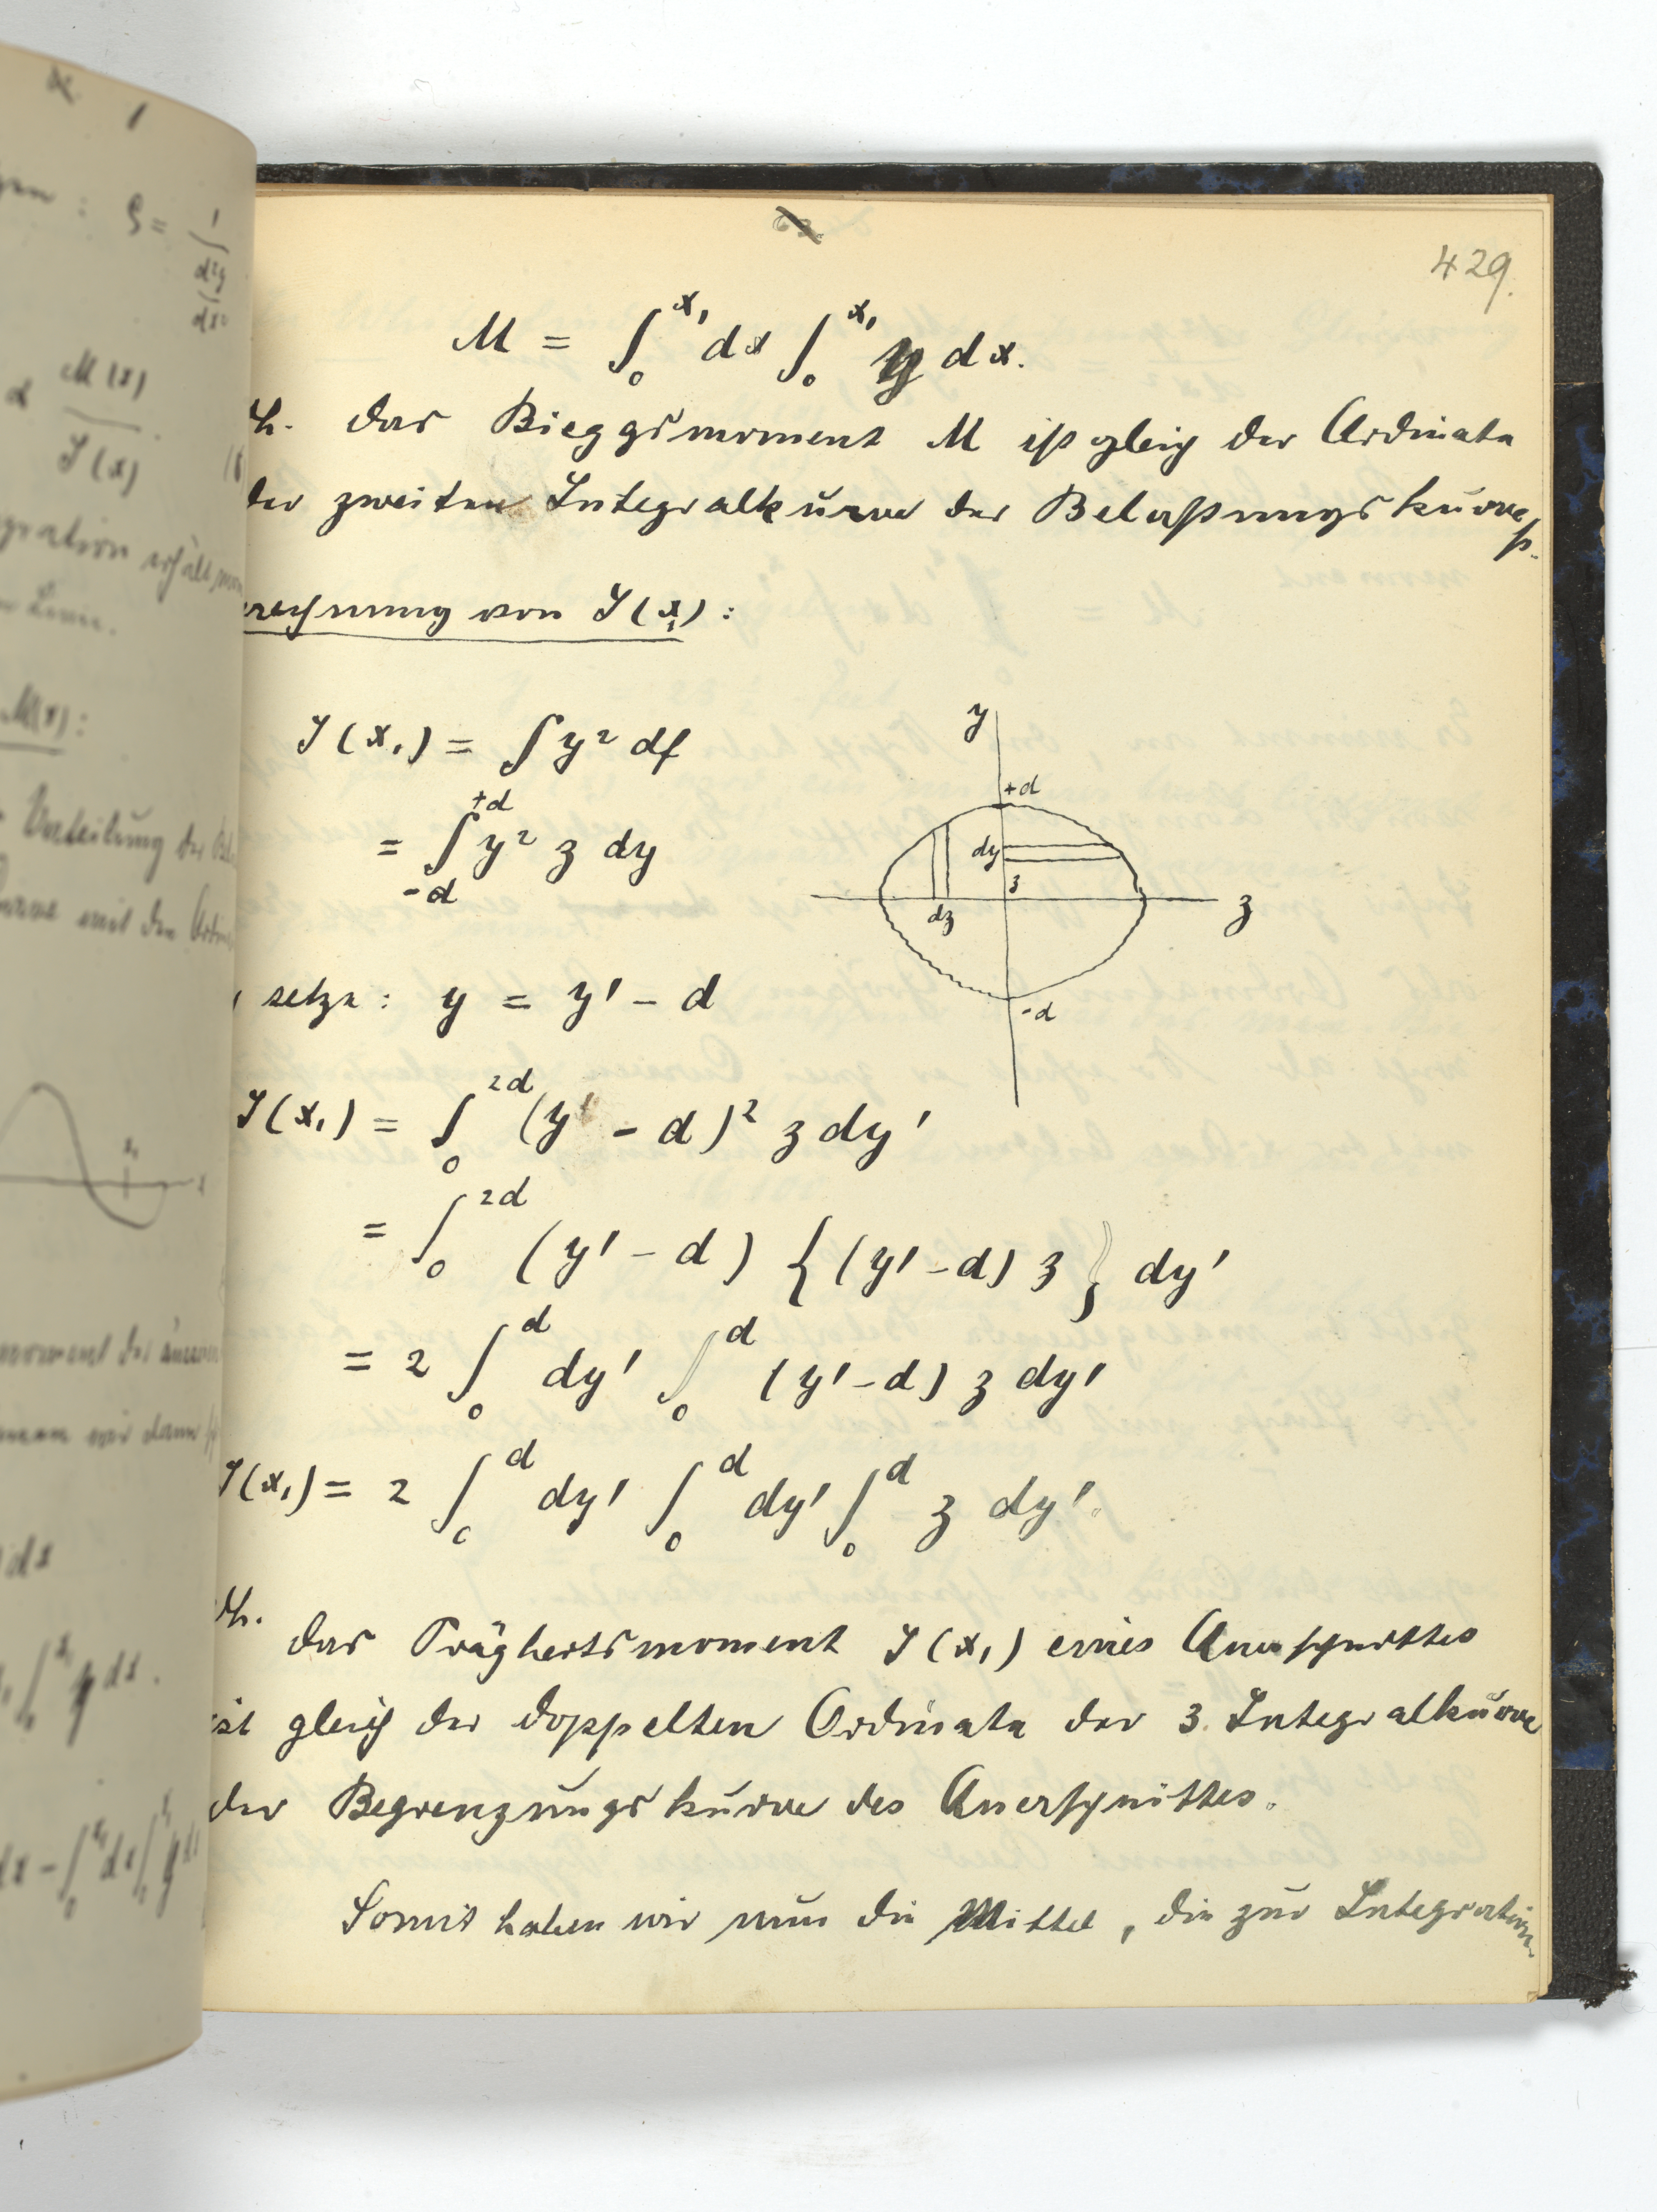 429.
M = ∫₀^{x₁} dx ∫₀^{x₁} y dx.
h. das Bieggsmoment M ist gleich der Ordinate
der zweiten Integralkurve der Belastungskurve
rechnung von J(x₁):
J(x₁) = ∫ y² df
= ∫_{-d}^{+d} y² z dy
y
+d
dy
z
dz
z
-d
setze: y = y' - d
J(x₁) = ∫₀^{2d} (y' - d)² z dy'
= ∫₀^{2d} (y' - d) {(y' - d) z} dy'
= 2 ∫₀^{d} dy' ∫₀^{d} (y' - d) z dy'
J(x₁) = 2 ∫₀^{d} dy' ∫₀^{d} dy' ∫₀^{d} z dy'.
h. das Trägheitsmoment J(x₁) eines Querschnittes
ist gleich der doppelten Ordinate der 3. Integralkurve
der Begrenzungskurve des Querschnittes.
Somit haben wir nun die Mittel, die zur Integration
: ρ = 1
d²y
dx²
M(x)
J(x)
gration erhält man
Linie.
M(x):
Verteilung der Bel
Kurve mit den Ordin
x₁
x
moment der äusseren
wir dann
dx
∫ y dx.
dx - ∫ dx ∫ y dx